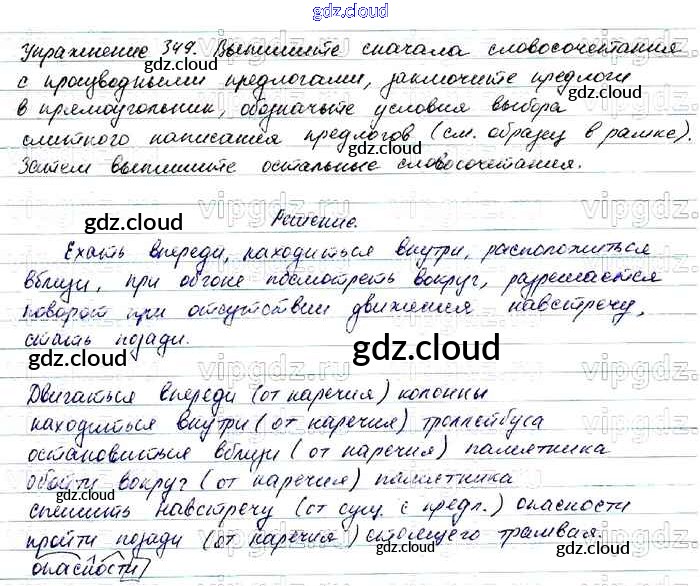 gdz.cloud
Упражнение 349. Выпишите сначала словосочетания
с производными предлогами, заключите предлоги
в прямоугольник, обозначьте условия выбора
слитного написания предлогов (см. образец в рамке).
Затем выпишите остальные словосочетания.
gdz.cloud
gdz.cloud
gdz.cloud
Решение.
Ехать впереди, находиться внутри, расположиться
вблизи, при обгоне посмотреть вокруг, разрешается
поворот при отсутствии движения навстречу,
стать позади.
gdz.cloud
gdz.cloud
gdz.cloud
Двигаться впереди (от наречия) колонны
находиться внутри (от наречия) троллейбуса
остановиться вблизи (от наречия) памятника
обойти вокруг (от наречия) памятника
спешить навстречу (от сущ. с предл.) опасности
пройти позади (от наречия) стоящего трамвая.
опасности
gdz.cloud
gdz.cloud
gdz.cloud
vipgdz.ru